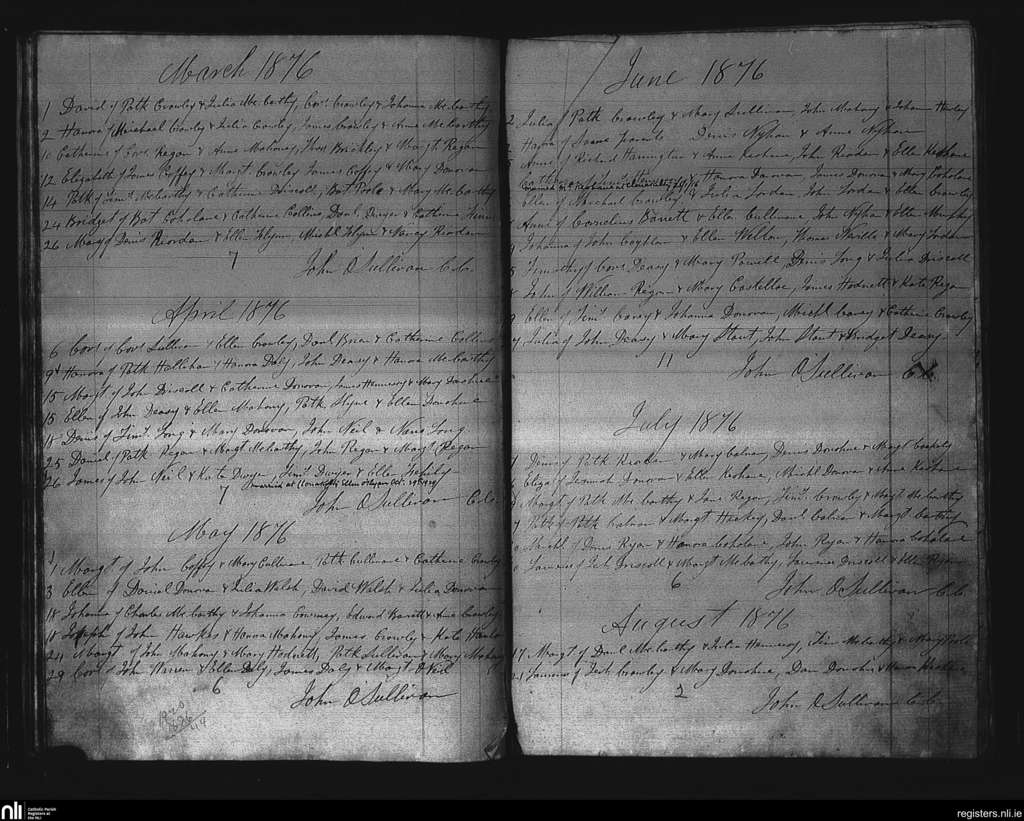 March 1876
1 David of Patk Crowley & Julia McCarthy, Cors. Crowley & Johanna McCarthy
2 Hanora of Michael Crowley & Julia Crowley, James Crowley & Anne McCarthy
10 Catherine of Cors. Regan & Anne Mahoney, Thos Brickley & Margt Regan
12 Elizabeth of James Coffey & Margt. Crowley James Coffey & Mary Donovan
14 Patk of Jim. McCarthy & Catherine Driscoll, Bat Poole & Mary McCarthy
24 Bridget of Bat Coholane & Catherine Collins, Danl. Dwyer & Catherine
26 Mary of Denis Reordan & Ellen Flynn, Michl Flynn & Nancy Reordan
7
John O'Sullivan C.C.
April 1876
6 Cors. of Cors. Sullivan & Ellen Crowley, Danl Brien & Catherine Collins
9 Hanora of Patk Hallihan & Hanora Daly, John Deasy & Hanora McCarthy
15 Margt of John Driscoll & Catherine Donovan, James Hennessy & Mary Donohue
15 Ellen of John Deasy & Ellen Mahony, Patk Hayes & Ellen Donohue
18 Denis of Timt. Long & Mary Donovan, John Neil & Mary Long
25 Daniel of Patk Regan & Margt McCarthy, John Regan & Margt Regan
26 James of John Neil & Kate Dwyer Timt. Dwyer & Ellen
7 married at Clonakilty Ellen Oct. 29th
John O'Sullivan C.C.
May 1876
1 Margt of John Coffey & Mary Cullinane Patk Cullinane & Catherine Crowley
3 Ellen of Daniel Donovan & Julia Walsh, David Walsh & Julia Donovan
18 Johanna of Charles McCarthy & Johanna Conemey, Edward Barrett & Anne Crowley
18 Joseph of John Hawkes & Hanora Mahony, James Crowley & Kate
24 Margt of John Mahony & Mary Hodnett, Patk Sullivan & Mary Mahony
29 Cors. of John Warren & Ellen Daly, James Daly & Margt O'Neil
6
John O'Sullivan
June 1876
2 Julia of Patk Crowley & Mary Sullivan, John Mahony & Johana Hurley
2 Hanora of Same parents Denis Nyhan & Anne Nyhan
5 Anne of Richard Harrington & Anne Keohane, John Reordan & Ellen Keohane
& Hanora Donovan, James Donovan & Mary Coholane
Ellen of Michael Crowley & Julia Jordan John Jordan & Ellen Crowley
Anne of Cornelius Barrett & Ellen Cullinane, John Nyhan & Ellen Murphy
Johanna of John Coghlan & Ellen Welton, Thomas Neville & Mary Jordan
Timothy of Cors. Deasy & Mary Powell, Denis Long & Julia Driscoll
John of William Regan & Mary Costelloe, James Hodnett & Kate Regan
Ellen of Timt. Carey & Johanna Donovan, Michl Carey & Catherine Crowley
Julia of John Deasy & Mary Stout, John Stout & Bridget Deasy
11
John O'Sullivan C.C.
July 1876
Denis of Patk Reordan & Mary Calnan, Dennis Donohue & Margt
Eliza of Jeremiah Donovan & Ellen Keohane, Michl Donovan & Anne Keohane
Margt of Patk McCarthy & Jane Regan, Timt. Crowley & Margt McCarthy
Patk of Patk Calnan & Margt Hickey, Danl Calnan & Margt Carthy
Michl of Denis Ryan & Hanora Coholane, John Ryan & Hanora Coholane
Laurence of Jerh Driscoll & Margt McCarthy, Laurence Driscoll & Ellen Regan
6
John O'Sullivan C.C.
August 1876
17 Margt of Danl McCarthy & Julia Hennessy, Tim McCarthy & Mary Poole
21 Laurence of Jerh Crowley & Mary Donohue, Dan Donohue &
2
John O'Sullivan C.C.
nli
Catholic Parish Registers at the NLI
registers.nli.ie